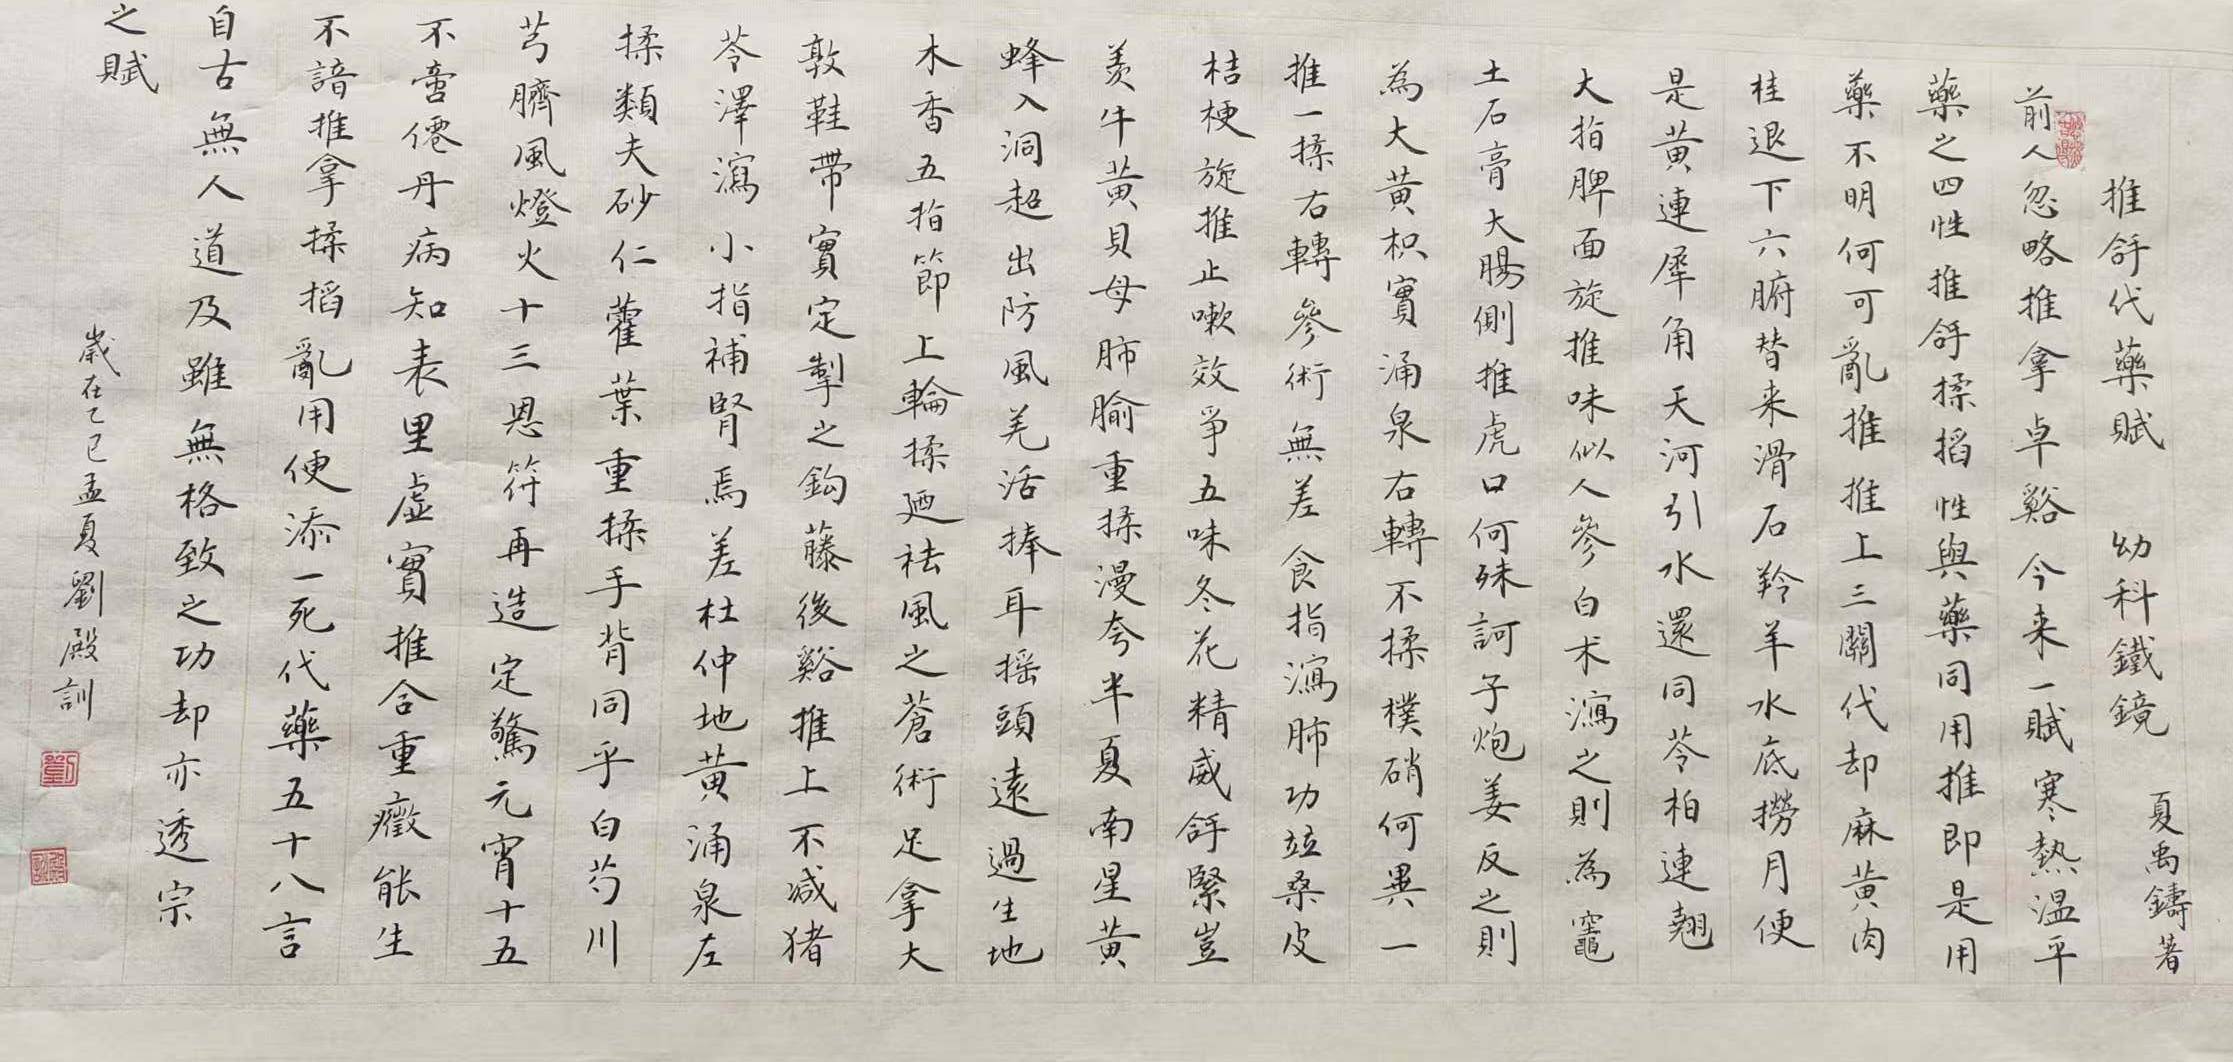 推舒代藥賦 幼科鐵鏡 夏禹鑄著
前人忽略推拿卓谿今来一賦寒熱温平
藥之四性推舒揉掐性與藥同用推即是用
藥不明何可亂推推上三關代却麻黄肉
桂退下六腑替来滑石羚羊水底撈月便
是黄連犀角天河引水還同芩柏連翹
大指脾面旋推味似人參白术瀉之則為竈
土石膏大腸側推虎口何殊訶子炮姜反之則
為大黄枳實涌泉右轉不揉樸硝何異一
推一揉右轉參術無差食指瀉肺功竝桑皮
桔梗旋推止嗽效爭五味冬花精威舒緊豈
羡牛黄貝母肺腧重揉漫夸半夏南星黄
蜂入洞超出防風羌活捧耳摇頭遠過生地
木香五指節上輪揉廼祛風之蒼術足拿大
敦鞋帶實定掣之鈎藤後谿推上不减猪
苓澤瀉小指補腎焉差杜仲地黄涌泉左
揉類夫砂仁藿葉重揉手背同乎白芍川
芎臍風燈火十三恩符再造定驚元宵十五
不啻僊丹病知表里虚實推合重癥能生
不諳推拿揉掐亂用便添一死代藥五十八言
自古無人道及雖無格致之功却亦透宗
之賦
歲在乙巳孟夏劉殿訓
劉